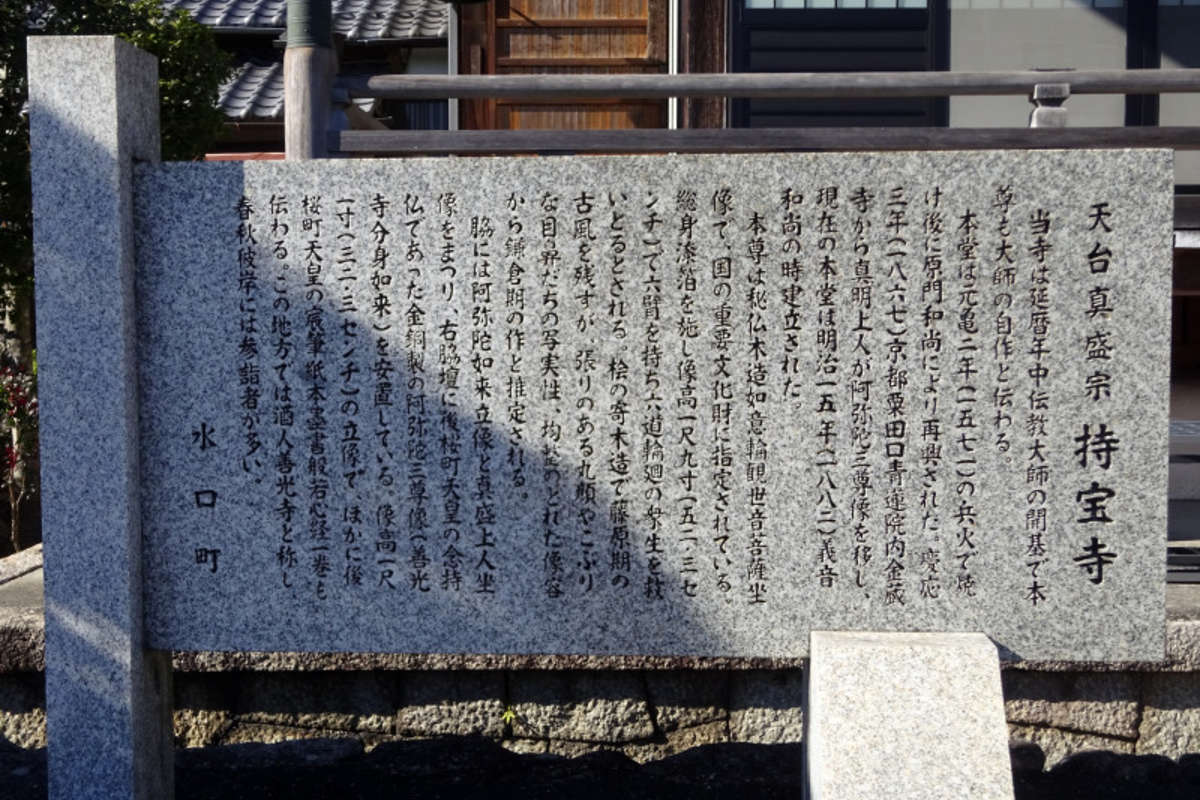 天台真盛宗 持宝寺
当寺は延暦年中伝教大師の開基で本
尊も大師の自作と伝わる。
本堂は元亀二年(一五七一)の兵火で焼
け後に原門和尚により再興された。慶応
三年(一八六七)京都粟田口青蓮院内金蔵
寺から真明上人が阿弥陀三尊像を移し、
現在の本堂は明治一五年(一八八二)義音
和尚の時建立された。
本尊は秘仏木造如意輪観世音菩薩坐
像で、国の重要文化財に指定されている。
総身漆箔を施し像高一尺九寸(五一・三セ
ンチ)で六臂を持ち六道輪廻の衆生を救
いとるとされる。桧の寄木造で藤原期の
古風を残すが、張りのある丸顔やこぶり
な目鼻だちの写実性、均整のとれた像容
から鎌倉期の作と推定される。
脇には阿弥陀如来立像と真盛上人坐
像をまつり、右脇壇に後桜町天皇の念持
仏であった金銅製の阿弥陀三尊像(善光
寺分身如来)を安置している。像高一尺
一寸(三二・三センチ)の立像で、ほかに後
桜町天皇の宸筆紙本墨書般若心経一巻も
伝わる。この地方では酒人善光寺と称し
春秋彼岸には参詣者が多い。
水口町